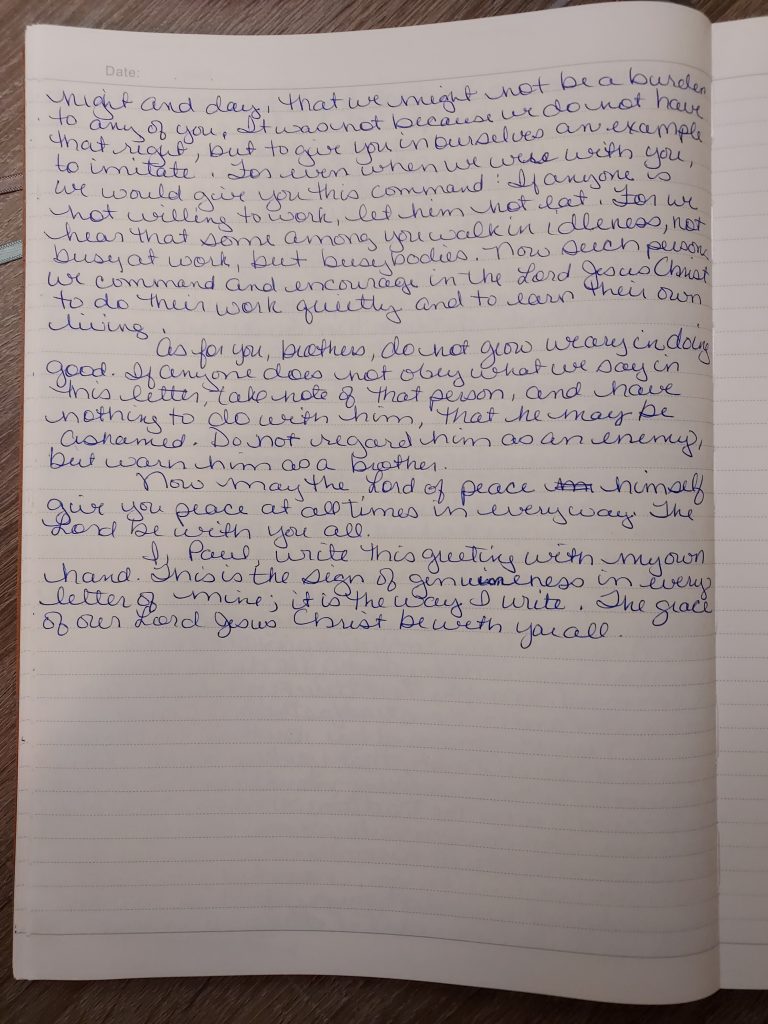 Date:
night and day, that we might not be a burden
to any of you. It was not because we do not have
that right, but to give you in ourselves an example
to imitate. For even when we were with you,
we would give you this command: If anyone is
not willing to work, let him not eat. For we
hear that some among you walk in idleness, not
busy at work, but busybodies. Now such persons
we command and encourage in the Lord Jesus Christ
to do their work quietly and to earn their own
living.
As for you, brothers, do not grow weary in doing
good. If anyone does not obey what we say in
this letter, take note of that person, and have
nothing to do with him, that he may be
ashamed. Do not regard him as an enemy,
but warn him as a brother.
Now may the Lord of peace himself
give you peace at all times in every way. The
Lord be with you all.
I, Paul, write this greeting with my own
hand. This is the sign of genuineness in every
letter of mine; it is the way I write. The grace
of our Lord Jesus Christ be with you all.